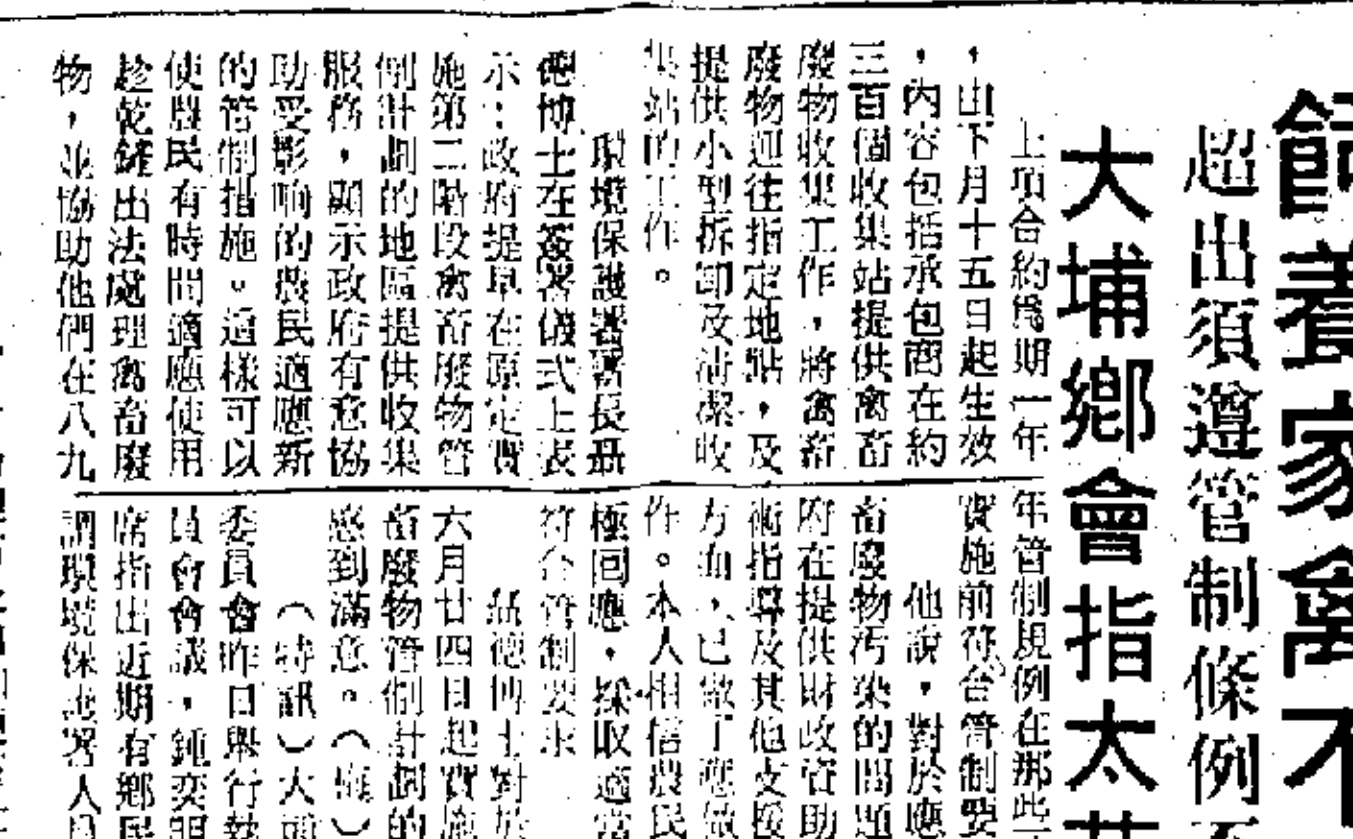 飼養家禽不
超出須遵管制條例
大埔鄉會指太
上項合約爲期一年
，由下月十五日起生效
，內容包括承包商在約
三百個收集站提供禽畜
廢物收集工作，將禽畜
廢物運往指定地點，及
提供小型拆卸及清潔收
集站的工作。
環境保護署署長聶
德博士在簽署儀式上表
示：政府提早在原定實
施第二階段禽畜廢物管
制計劃的地區提供收集
服務，顯示政府有意協
助受影响的農民適應新
的管制措施。這樣可以
使農民有時間適應使用
趁乾鏟出法處理禽畜廢
物，並協助他們在八九
年管制規例在那些
實施前符合管制要
他說，對於應
畜廢物污染的問題
府在提供財政資助
術指導及其他支援
方面，已做了應做
作。本人相信農民
極回應，採取適當
符合管制要求
聶德博士對於
六月廿四日起實施
畜廢物管制計劃的
感到滿意。（
（特訊）大埔
委員會昨日舉行執
員會會議，鍾奕明
席指出近期有鄉民
調環境保護署人員